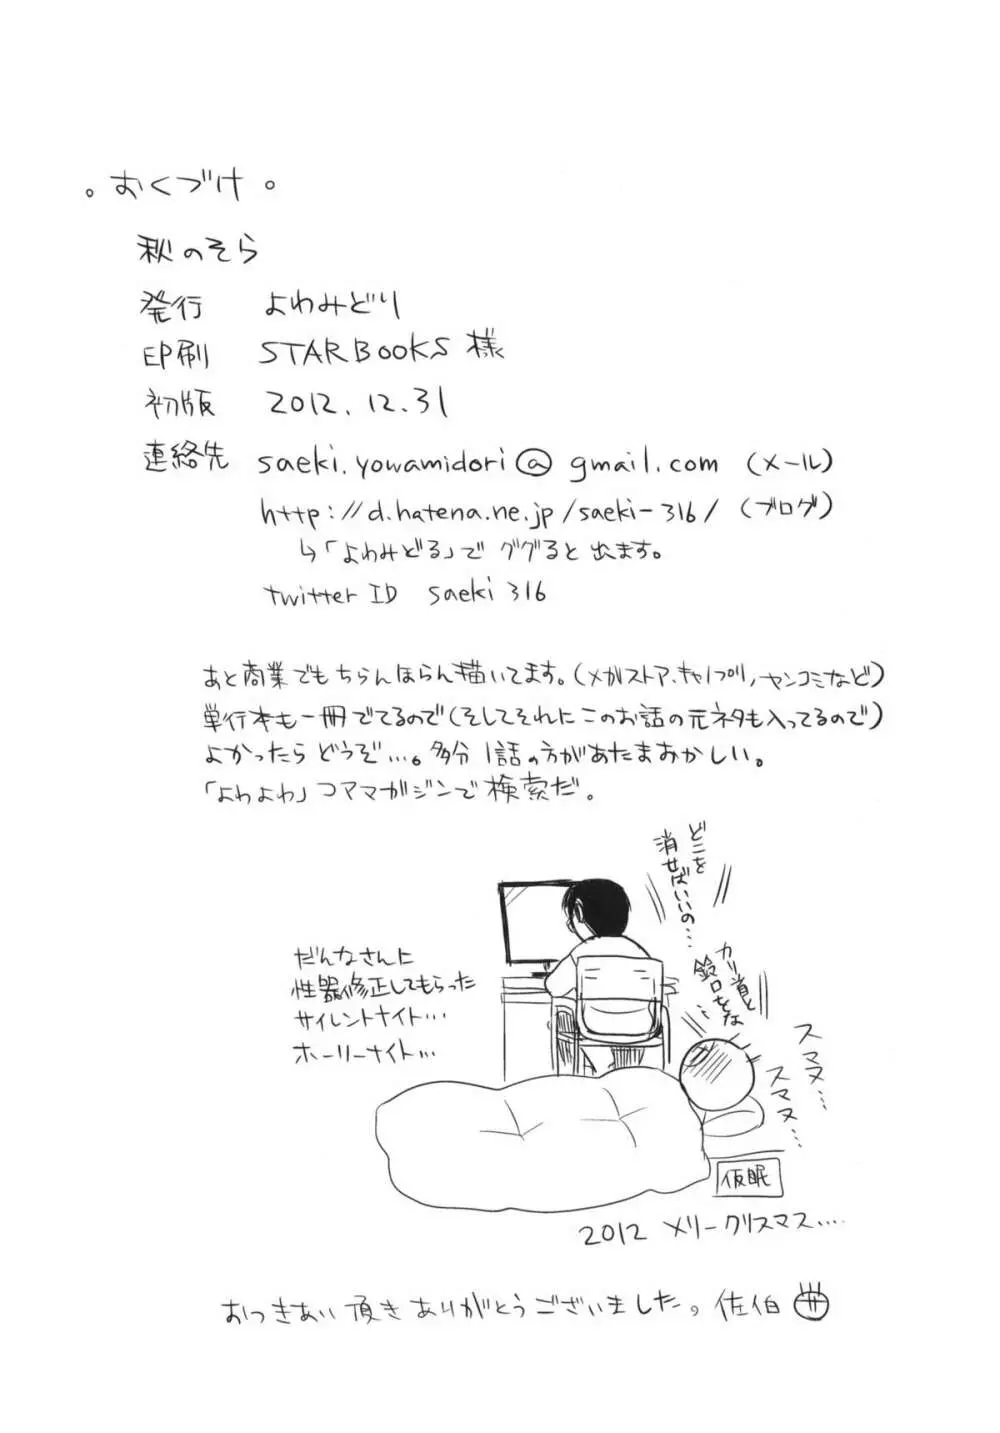 。おくづけ。
秋のそら
発行 よわみどり
印刷 STARBOOKS 様
初版 2012.12.31
連絡先 saeki.yowamidori@gmail.com (メール)
http://d.hatena.ne.jp/saeki-316/ (ブログ)
↳「よわみどる」で ググると 出ます。
twitter ID saeki 316
あと商業でも ちらんほらん描いてます。(メガストア、キャノプリ、ヤンコミなど)
単行本も一冊でてるので(そしてそれに このお話の元ネタも入ってるので)
よかったら どうぞ…。多分 1話の方があたまおかしい。
「よわよわ」コアマガジンで検索だ。
どこを
消せばいいの…
カリ首と
鈴口をな…
だんなさんに
性器修正してもらった
サイレントナイト…
ホーリーナイト…
スマヌ…
スマヌ…
仮眠
2012 メリークリスマス….
おつきあい頂きありがとうございました。佐伯 サ